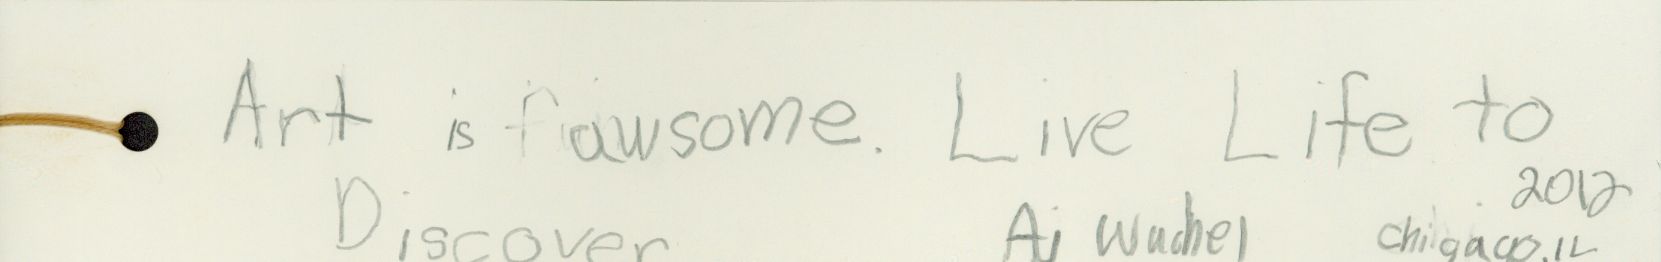 Art is fawsome. Live Life to
Discover
2012
Aj Wachel chigago, IL